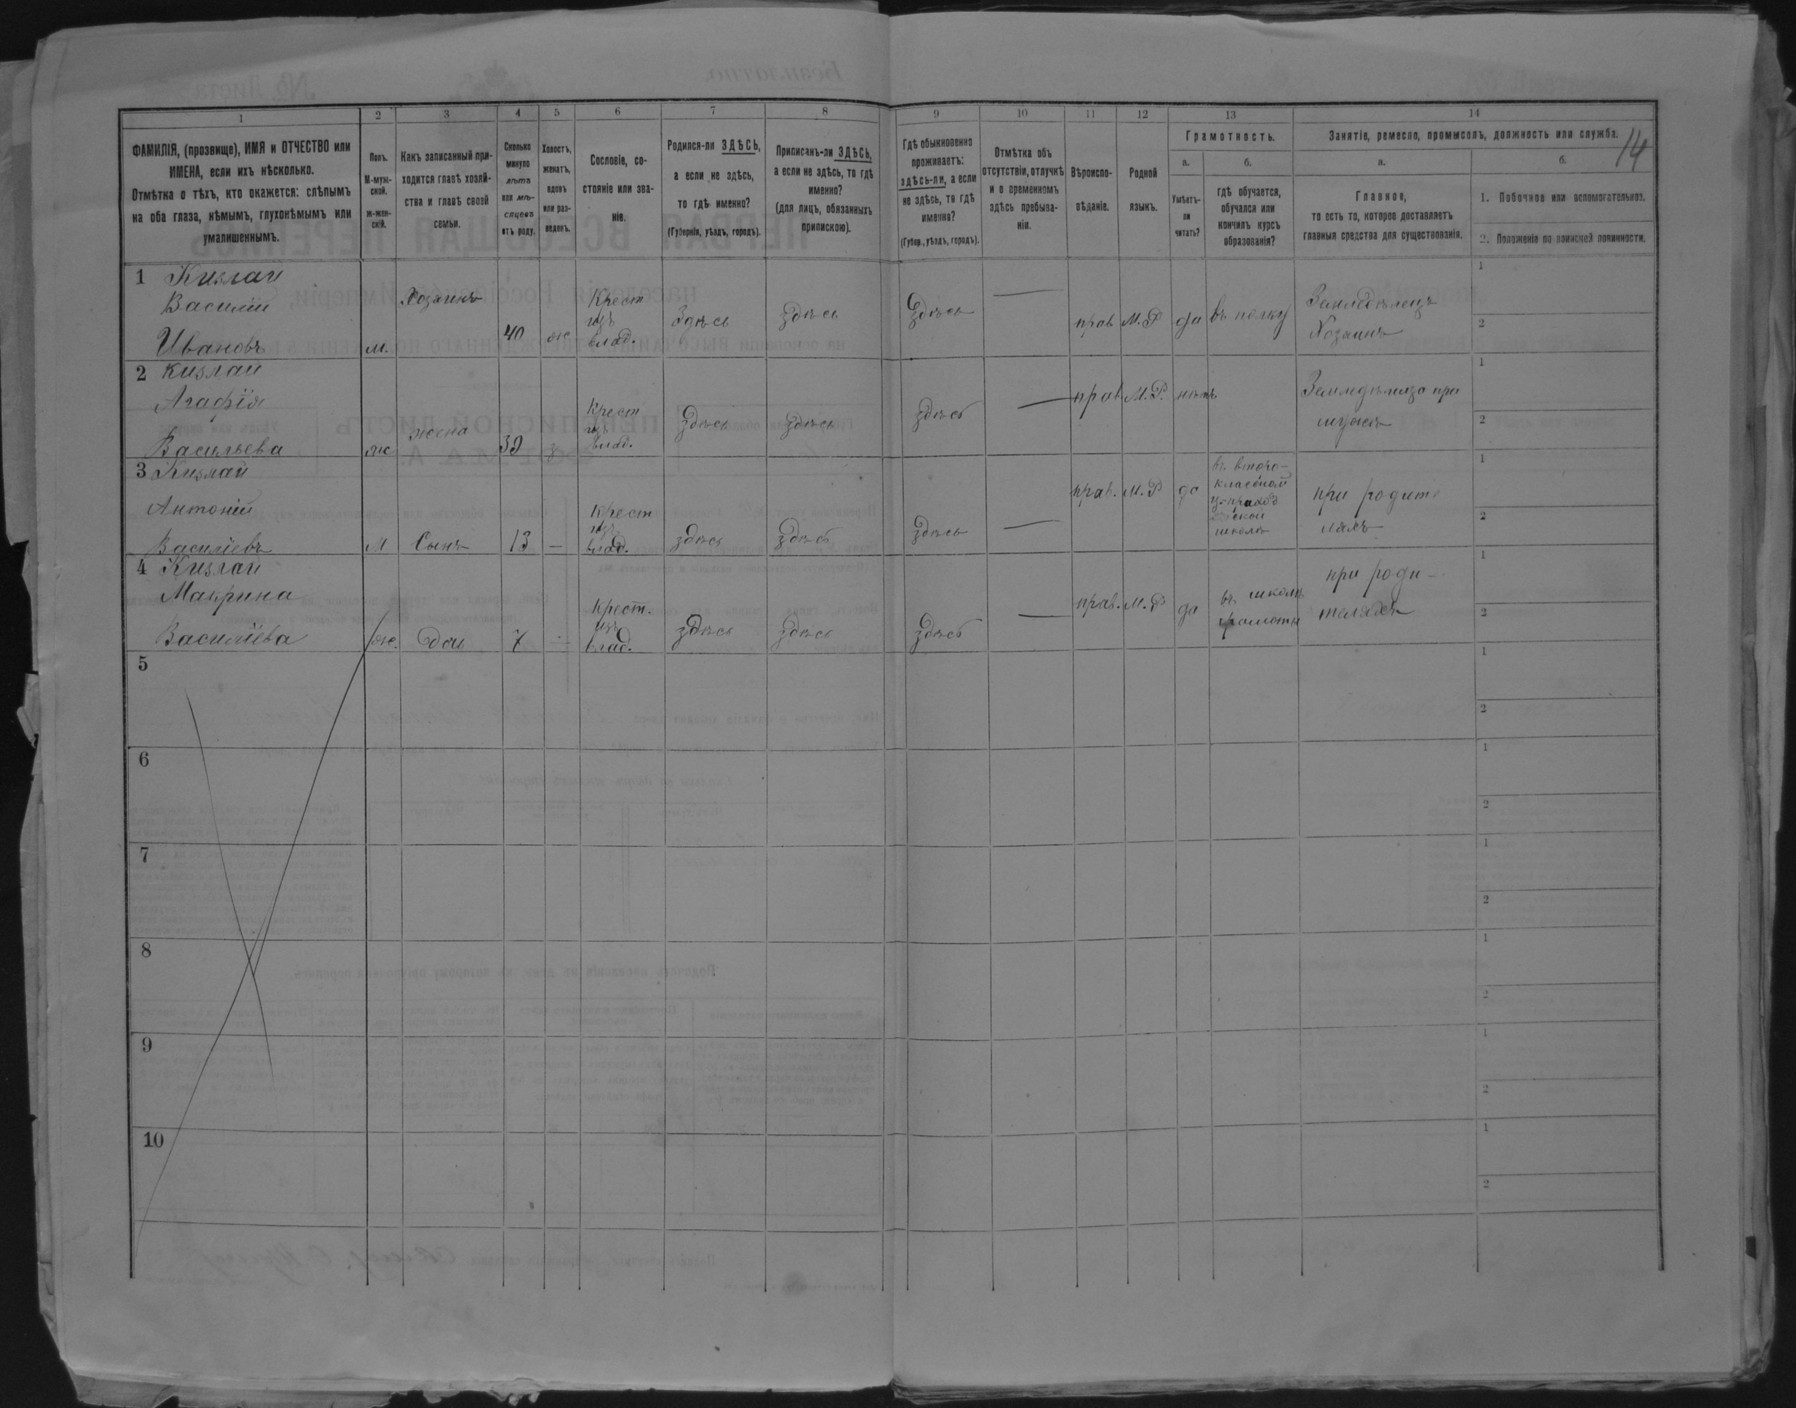 1 2 3 4 5 6 7 8 9 10 11 12 13 14
14
ФАМИЛІЯ, (прозвище), ИМЯ и ОТЧЕСТВО или
ИМЕНА, если ихъ нѣсколько.
Отмѣтка о тѣхъ, кто окажется: слѣпымъ
на оба глаза, нѣмымъ, глухонѣмымъ или
умалишеннымъ.
Полъ.
М-муж-
ской.
ж-жен-
скій.
Какъ записанный при-
ходится главѣ хозяй-
ства и главѣ своей
семьи.
Сколько
минуло
лѣтъ
или мѣ-
сяцевъ
отъ роду.
Холостъ,
женатъ,
вдовъ
или раз-
веденъ.
Сословіе, со-
стояніе или зва-
ніе.
Родился-ли ЗДѢСЬ,
а если не здѣсь,
то гдѣ именно?
(Губернія, уѣздъ, городъ).
Приписанъ-ли ЗДѢСЬ,
а если не здѣсь, то гдѣ
именно?
(для лицъ, обязанныхъ
припискою).
Гдѣ обыкновенно
проживаетъ:
здѣсь-ли, а если
не здѣсь, то гдѣ
именно?
(Губер., уѣздъ, городъ).
Отмѣтка объ
отсутствіи, отлучкѣ
и о временномъ
здѣсь пребыва-
ніи.
Вѣроиспо-
вѣданіе.
Родной
языкъ.
Грамотность.
а.
Умѣетъ-
ли
читать?
б.
гдѣ обучается,
обучался или
кончилъ курсъ
образованія?
Занятіе, ремесло, промыселъ, должность или служба.
а.
Главное,
то есть то, которое доставляетъ
главныя средства для существованія.
б.
1. Побочное или вспомогательное.
2. Положеніе по воинской повинности.
1 Кизлай
Василій
Ивановъ
м.
Хозяинъ
40
ж
Крест
изъ
влад.
Здѣсь
здѣсь
Здѣсь
прав
М.Р
да
въ полку
Земледѣлецъ
Хозяинъ
1
2
2 Кизлай
Агафія
Васильева
ж
жена
39
з
Крест
изъ
влад.
здѣсь
здѣсь
здѣсь
прав
М.Р.
нѣтъ
Земледѣлица при
мужѣ
1
2
3 Кизлай
Антоній
Василіевъ
М
Сынъ
13
—
Крест
изъ
влад.
здѣсь
здѣсь
здѣсь
прав.
М.Р
да
въ второ-
класной
ц-приход
ской
школѣ
при родите
ляхъ
1
2
4 Кизлай
Маврина
Василіева
ж.
доч
7
—
Крест.
изъ
влад.
здѣсь
здѣсь
здѣсь
прав.
М.Р
да
въ школѣ
грамоты
при роди-
теляхъ
1
2
5
1
2
6
1
2
7
1
2
8
1
2
9
1
2
10
1
2